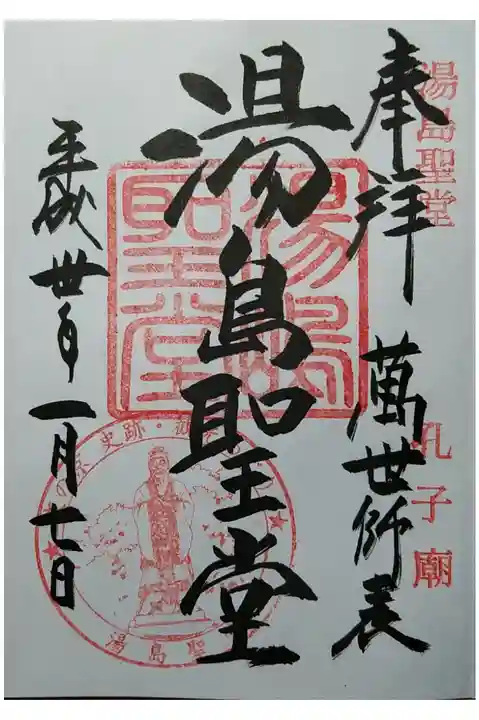 湯島聖堂
孔子廟
奉拝 萬世師表
湯島聖堂
湯島
聖堂
史跡・
湯島聖
平成丗年一月七日